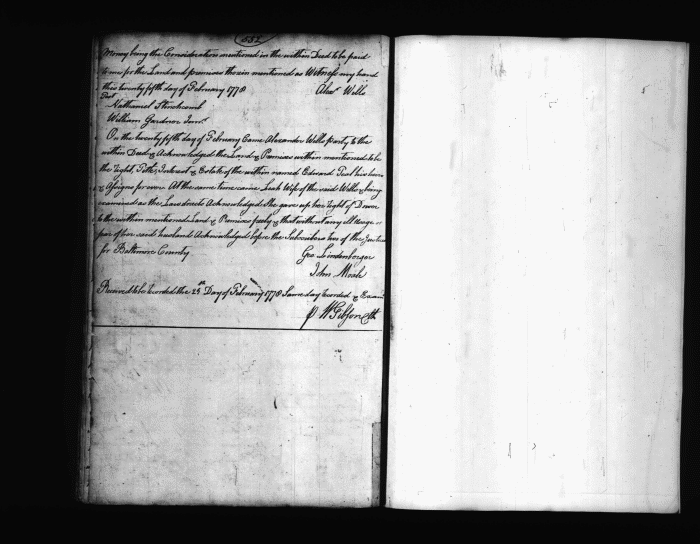 552
Money being the Consideration mentioned in the within Deed to be paid
to me for the Land and premises therein mentioned as Witness my hand
this twenty fifth day of February 1778 Alexr Wells
Test
Nathaniel Stinchcomb
William Gardner Junr
On the twenty fifth day of February Came Alexander Wells party to the
within Deed & Acknowledged the Land & Premises within mentioned to be
the Right, Title, Interest & Estate of the within named Edward Teal his heirs
& Assigns for ever At the same time came Leah Wife of the said Wells & being
examined as the Law directs Acknowledged She gave up her Right of Dower
to the within mentioned Land & Premises freely & that without any ill Usage on
part of her said husband Acknowledged before the Subscribers two of the Justices
for Baltimore County Geo Lindenberger
John Moale
Received to be recorded the 25th Day of February 1778 Same day recorded & Examd
p Wm Gibson Clk